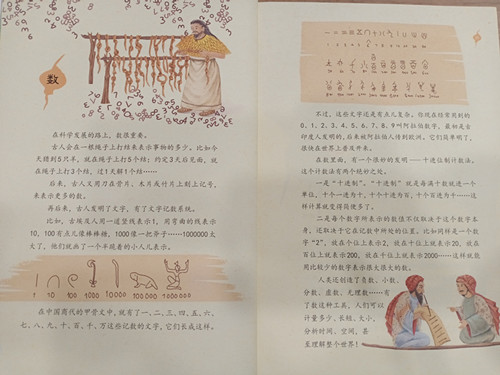 数
在科学发展的路上，数很重要。
古人会在一根绳子上打结来表示事物的多少。比如今
天猎到5只羊，就在绳子上打5个结；约定3天后见面，就
在绳子上打3个结，过1天解1个结……
后来，古人又用刀在骨片、木片或竹片上刻上记号，
来表示更多的数。
再后来，古人发明了文字，有了文字记数系统。
比如，古埃及人用一道竖线表示1，用弯曲的线表示
10，100有点儿像棒棒糖，1000像一把茶子……1000000太
大了，他们就画了一个半跪着的小人儿表示。
1 10 100 1000 10000 100 000 1000 000
在中国商代的甲骨文中，就有了一、二、三、四、五、六、
七、八、九、十、百、千、万这些记数的文字，它们长成这样。
1 2 3 4 5 6 7 8 9 10
不过，这些文字还是有点儿复杂。你现在经常用到的
0、1、2、3、4、5、6、7、8、9叫阿拉伯数字，最初是古
印度人发明的，后来被阿拉伯人传到欧洲。它们简单明了，
很快在世界上普及开来。
在数里面，有一个很妙的发明——十进位制计数法。
这个计数法有两个绝妙之处。
一是“十进制”。“十进制”就是每满十数就进一个
单位，十个一进为十，十个十进为百，十个百进为千……这
样计算就变得简便多了。
二是每个数字所表示的数值不仅取决于这个数字本
身，还取决于它在记数中所处的位置。比如同样是一个数
字“2”，放在个位上表示2，放在十位上就表示20，放在
百位上就表示200，放在千位上就表示2000……这样就能
用比较少的数字表示很大很大的数。
人类还创造了负数、小数、
分数、虚数、无理数……有
了数这种工具，人们可以
计量多少、长短、大小，
分析时间、空间，甚
至理解整个世界！